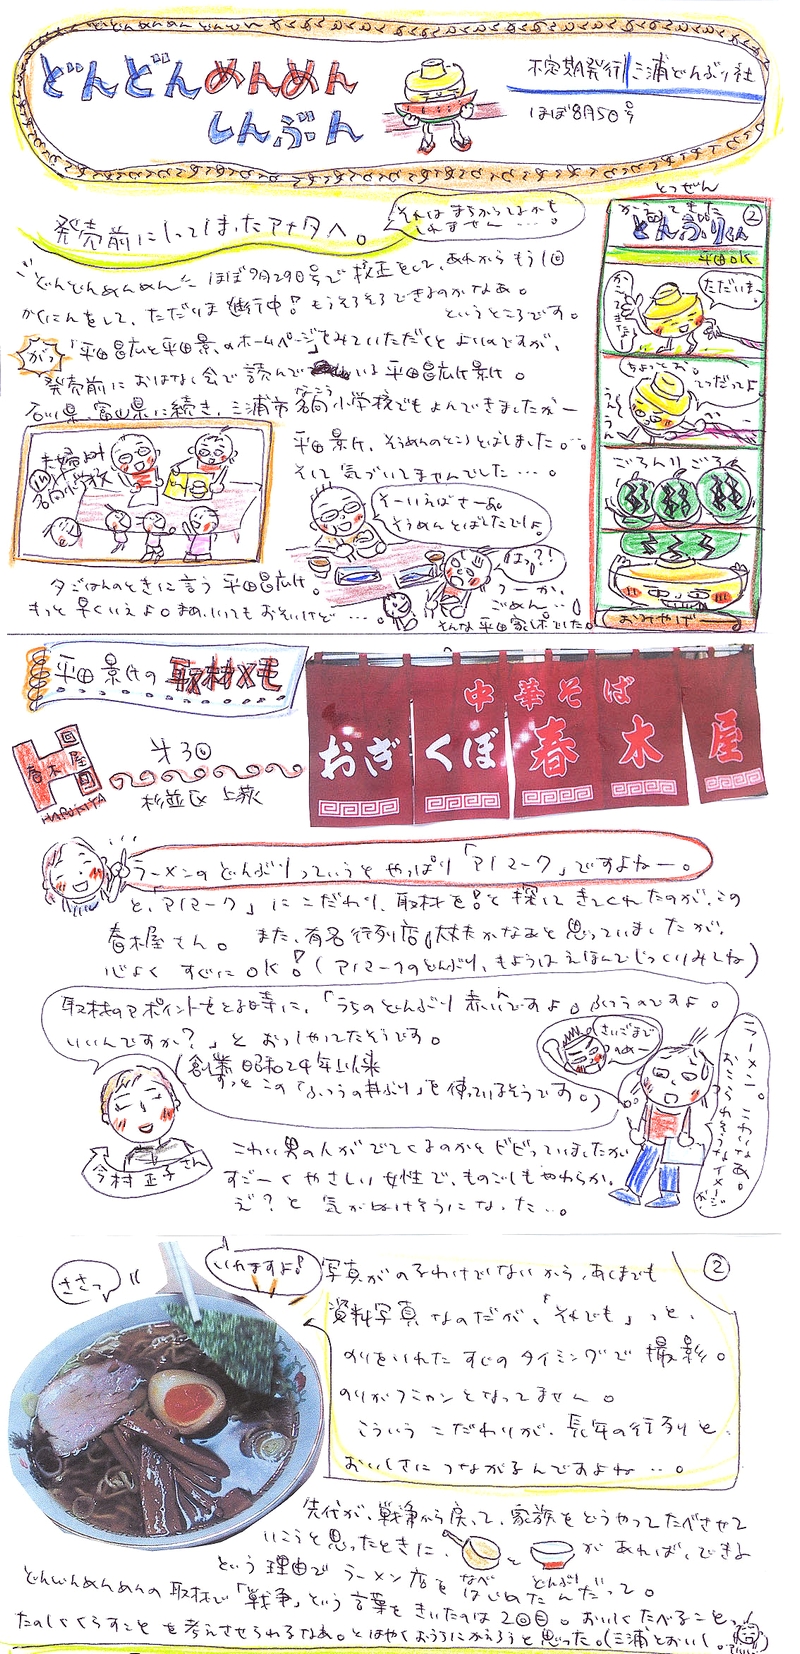 どんどんめんめん
しんぶん
不定期発行 三浦どんぶり社
ほぼ8月50号
発売前にしってしまったアナタへ。
それはまちがってるかも
しれません…
"どんどんめんめん" ほぼ9月29日号で校正をして、あれからもう1回
かくにんをして、ただいま進行中!もうそろそろできるのかなあ。
というところです。
がっ
「平田昌広と平田景」のホームページをみていただくとよいのですが、
発売前におはなし会で読んでいる平田昌広は景は。
石川県、富山県に続き、三浦市名向小学校でもよんできましたがー
なこう
平田景は、そうめんのところとばしました…。
そして気づいてませんでした…。
夫婦よみ
in
名向小学校
そーいえばさーあ。
そうめんとばしたでしょ
はっ?!
うーか、
ごめん…。
夕ごはんのときに言う平田昌広は。
もっと早くいえよ。まぁ、いってもおそいけど…。
そんな平田家しごとでした。
とつぜん
かえってきた
②
どんぶりくん
平田OK
ただいまー
かごろうさまー
ちょっとお。
てつだってよ
うーんうーん
ごろんごろごろん
おみやげー
平田景はの取材メモ
中華そば
おぎくぼ春木屋
春木屋
HARUKIYA
第3回
杉並区 上荻
ラーメンのどんぶりっていうとやっぱり「アノマーク」ですよねー。
と、「アノマーク」にこだわり、取材を!と探してきてくれたのが、この
春木屋さん。また、有名行列店!大丈夫かなあと思っていましたが、
心よくすぐにOK!(アノマークのどんぶり、もようはえほんでじっくりみてね)
取材のアポイントをとる時に、「うちのどんぶり赤いんですよ。ふつうのですよ。
いいんですか?」とおっしゃってたそうです。
(創業昭和24年以来
ずっとこの「ふつうの丼ぶり」を使っているそうです。)
さいごまで
のめー
ラーメン。こわいなあ。
おこられそうなイメージが
今村正子さん
こわい男の人がでてくるのかとビビっていましたが
すごーくやさしい女性で、ものごしもやわらか。
え?と気がぬけそうになった…。
ささっ
いれますよ!
②
写真がのるわけでないから、あくまでも
資料写真なのだが、「それでも」っと、
のりをいれたすぐのタイミングで撮影。
のりがフニャンとなってません。
こういうこだわりが、長年の行列と、
おいしさにつながるんですよね…。
先代が、戦争から戻って、家族をどうやってたべさせて
いこうと思ったときに、 と があれば、できる
なべ どんぶり
という理由でラーメン店をはじめたんだって。
どんどんめんめんの取材で「戦争」という言葉をきいたのは2回目。おいしくたべることっ!
たのしくくらすことを考えさせられるなあ。とはやくおうちにかえろうと思った。(三浦とおいし。)